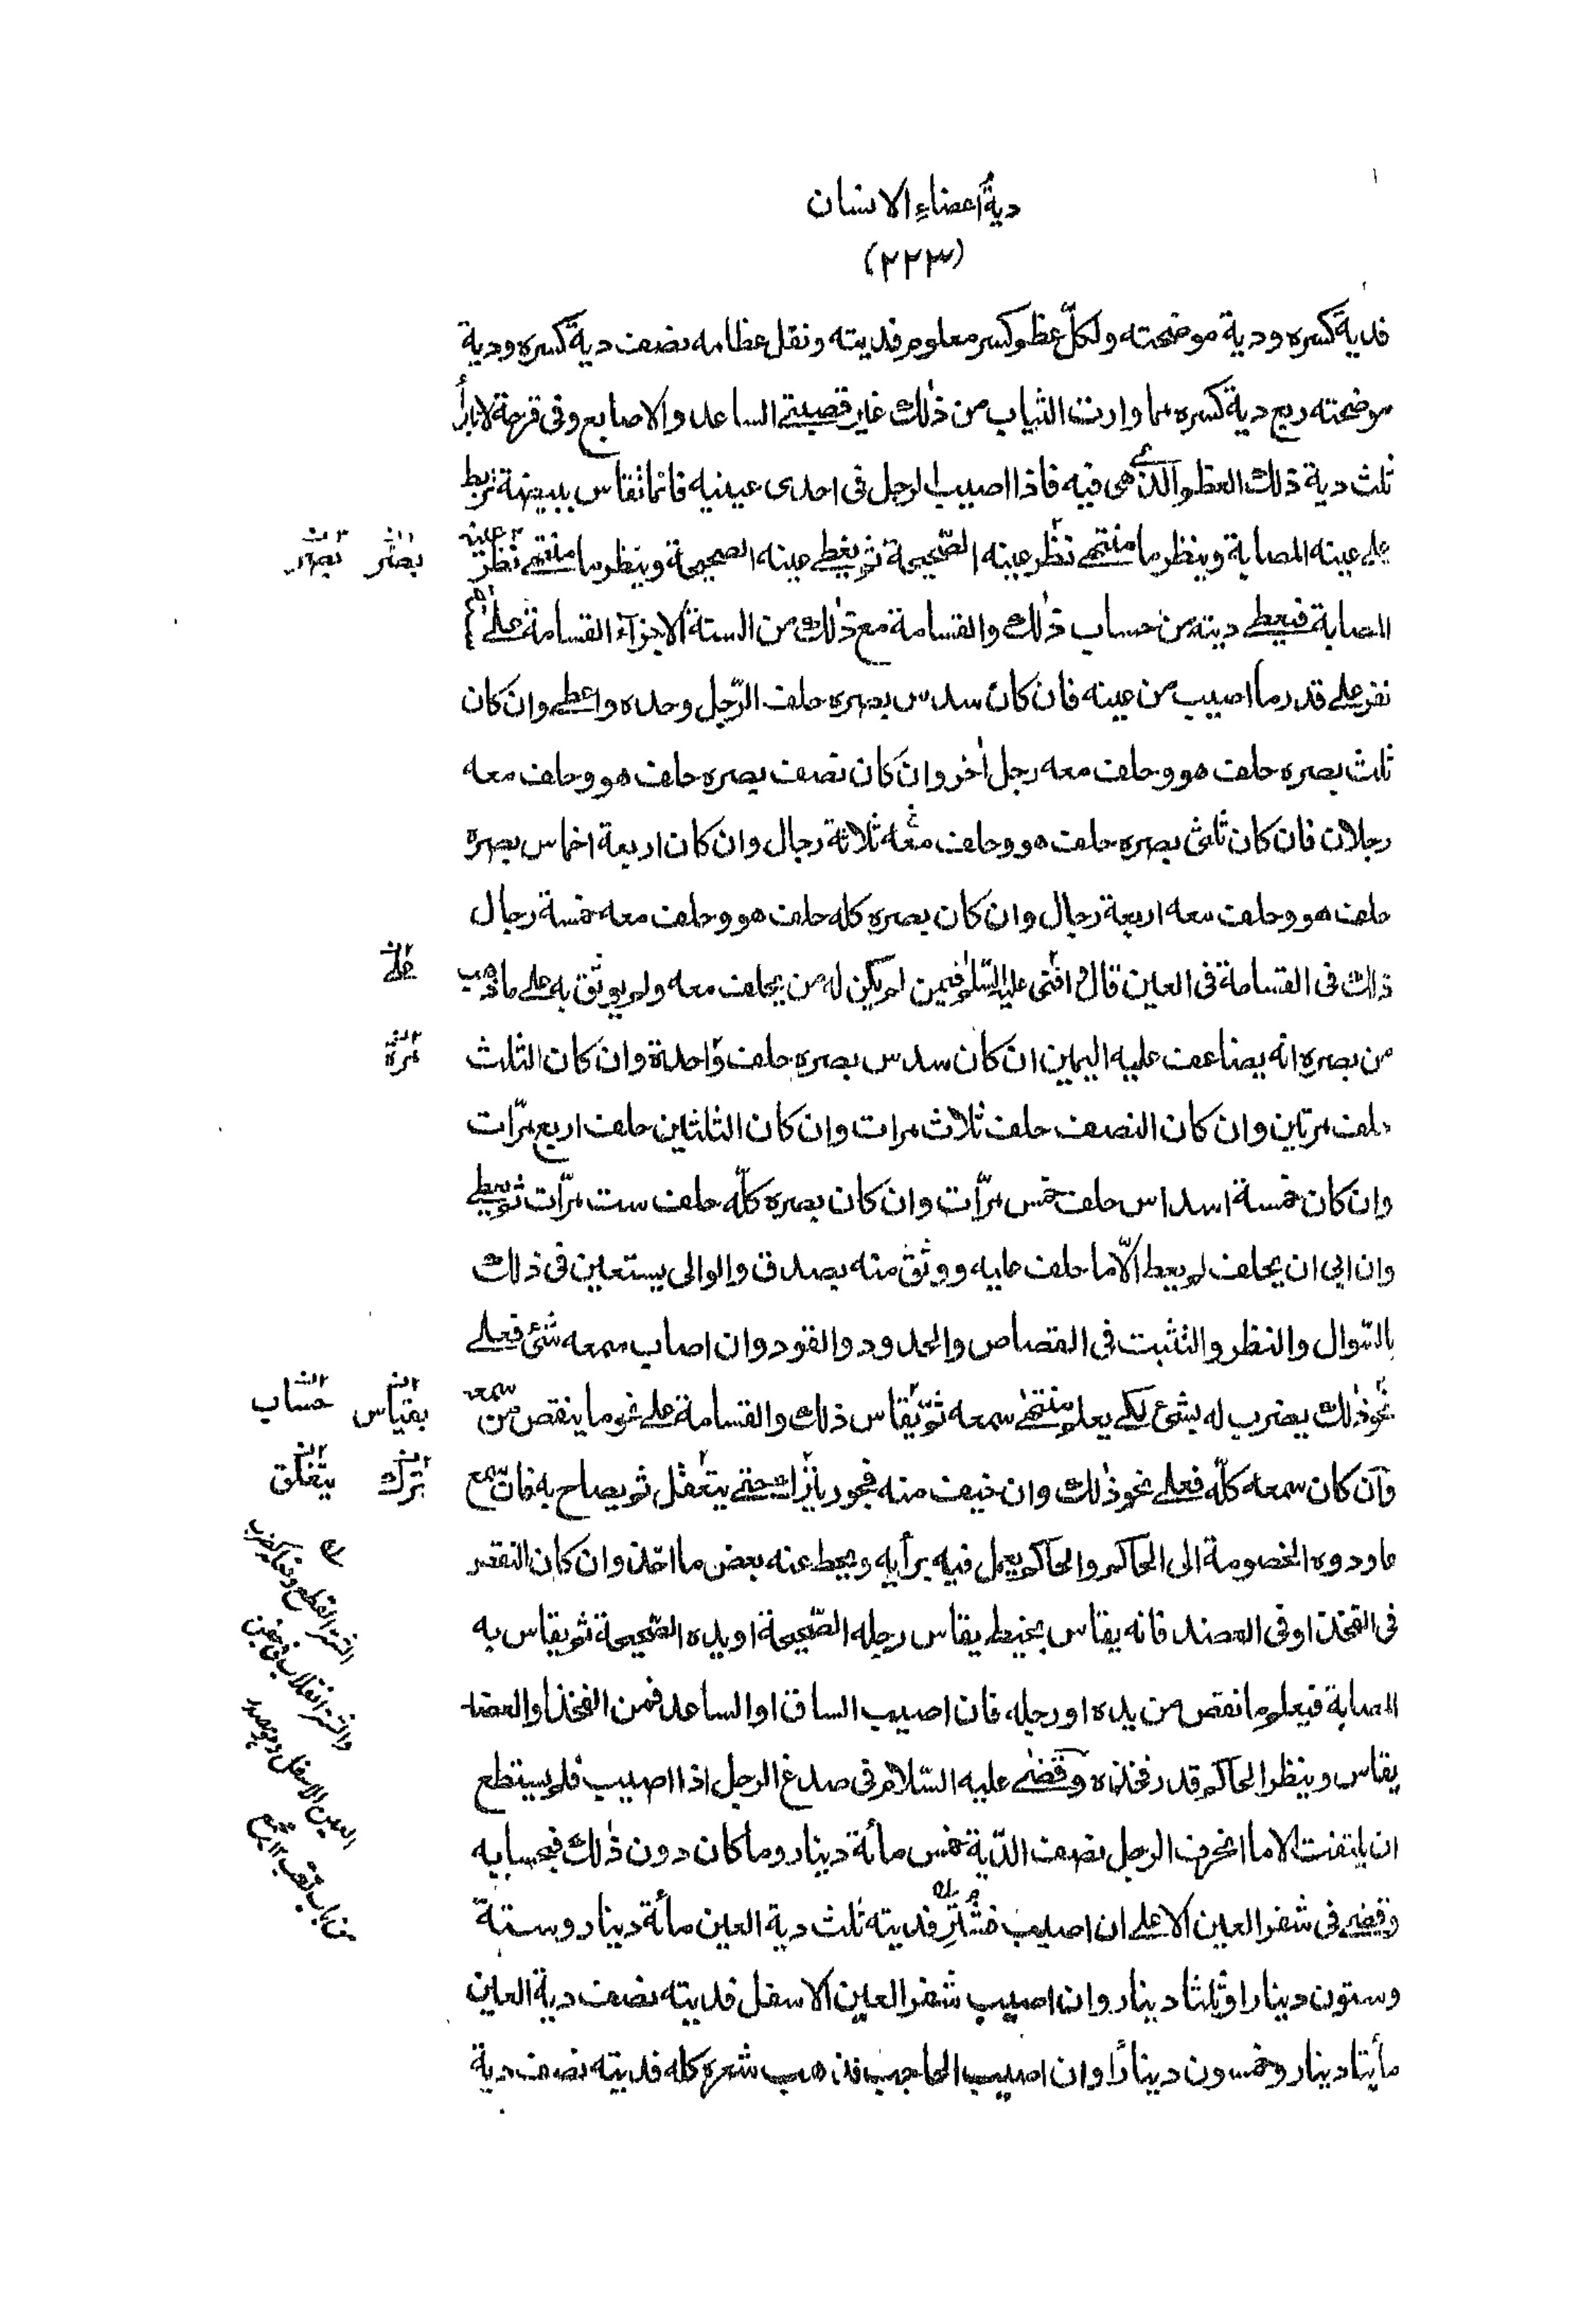 دية أعضاء الانسان
(٢٢٣)
فدية كسره ودية موضحته ولكلّ عظم كسر معلوم فديته ونقل عظامه نصف دية كسره ودية
موضحته ربع دية كسره مما وارت الثياب من ذلك غير قصبتي الساعد والاصابع وفى قرحة لا تبرأ
ثلث دية ذلك العظم الذى هى فيه فاذا اصيب الرجل فى احدى عينيه فانما تقاس ببيضة تربط
على عينه المصابة وينظر ما منتهى نظر عينه الصّحيحة ثم يغطى عينه الصحيحة وينظر ما منتهى نظر عينه
المصابة فيعطى ديته من حساب ذلك والقسامة مع ذلك من الستة الاجزاء القسامة على
نفر على قدر ما اصيب من عينه فان كان سدس بصره حلف الرّجل وحده واعطى وان كان
ثلث بصره حلف هو وحلف معه رجل اخر وان كان نصف بصره حلف هو وحلف معه
رجلان فان كان ثلثى بصره حلف هو وحلف معه ثلاثة رجال وان كان اربعة اخماس بصره
حلف هو وحلف معه اربعة رجال وان كان بصره كله حلف هو وحلف معه خمسة رجال
ذلك فى القسامة فى العين قال و افتى عليه السّلم فيمن لم يكن له من يحلف معه ولم يوثق به على ما ذهب
من بصره انه يضاعف عليه اليمين ان كان سدس بصره حلف واحدة وان كان الثلث
حلف مرتين وان كان النصف حلف ثلاث مرات وان كان الثلثين حلف اربع مرّات
وان كان خمسة اسداس حلف خمس مرّات وان كان بصره كلّه حلف ست مرّات ثم يعطى
وان ابى ان يحلف لم يعط الّا ما حلف عليه ووثق منه بصدق والوالى يستعين فى ذلك
بالسّوال والنظر والتثبت فى القصاص والحدود والقود وان اصاب سمعه شئ فعلى
نحو ذلك يضرب له بشئ لكى يعلم منتهى سمعه ثمّ يقاس ذلك والقسامة على نحو ما ينقص من سمعه
فان كان سمعه كلّه فعلى نحو ذلك وان خيف منه فجور يترك حتى يتغفل ثم يصاح به فان سمع
عاودوه الخصومة الى الحاكم والحاكم يعمل فيه برأيه ويحط عنه بعض ما اخذ وان كان النقص
فى الفخذ او فى العضد فانه يقاس بخيط يقاس رجله الصّحيحة او يده الصّحيحة ثم يقاس به
المصابة فيعلم ما نقص من يده او رجله، فان اصيب الساق او الساعد فمن الفخذ او العضد
يقاس وينظر الحاكم قدر فخذه وقضى عليه السّلام فى صدغ الرجل اذا اصيب فلم يستطع
ان يلتفت الا ما انحرف الرجل نصف الدّية خمس مائة دينار وما كان دون ذلك فبحسابه
وقضى فى شفر العين الاعلى ان اصيب فشتر فديته ثلث دية العين مائة دينار وستة
وستون دينارا وثلثا دينار وان اصيب شفر العين الاسفل فديته نصف دية العين
مأيتا دينار وخمسون دينارًا وان اصيب الحاجب فذهب شعره كله فديته نصف دية
بصر
على
مرة
بقياس
حساب
ترك
يتغلق
الشتر القطع
والشتر انقلاب فى جفن
العين الاسفل